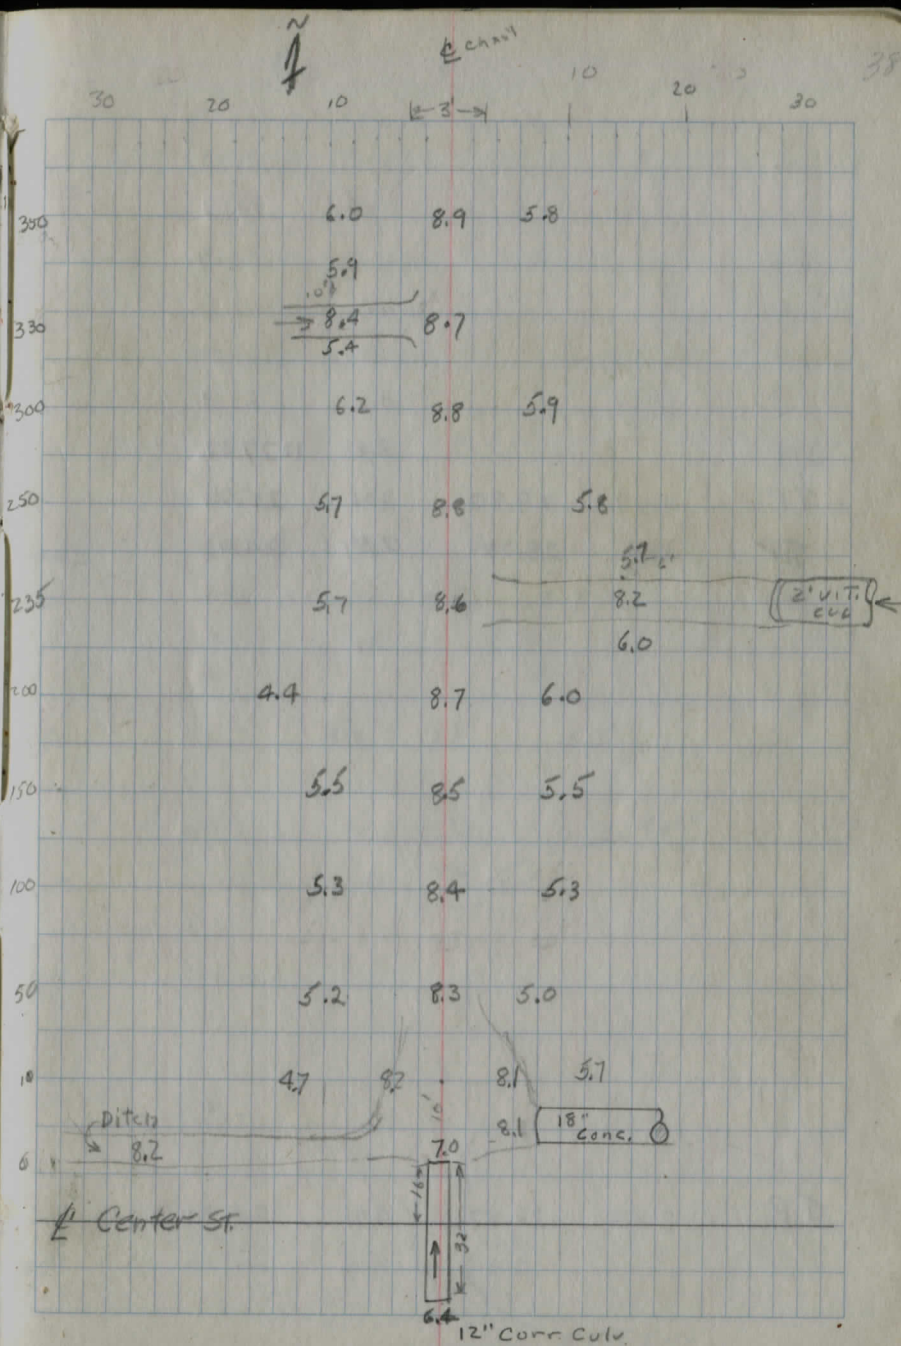 N
℄ chan'l
38
30 20 10 3' 10 20 30
350 6.0 8.9 5.8
5.9
10'
330 8.4 8.7
5.4
300 6.2 8.8 5.9
250 5.7 8.8 5.8
5.7
235 5.7 8.6 8.2 2' VIT.
6.0
200 4.4 8.7 6.0
150 5.5 8.5 5.5
100 5.3 8.4 5.3
50 5.2 8.3 5.0
10 4.7 8.2 8.1 5.7
10'
Ditch 8.1 18"
Conc.
0 8.2 7.0
16
℄ Center St.
32
6.4
12" Corr. Culv.